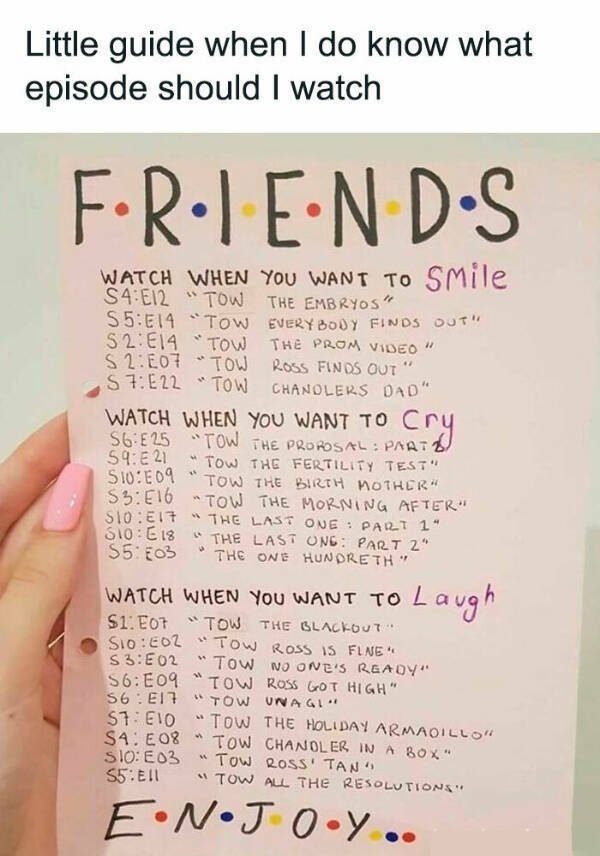 Little guide when I do know what
episode should I watch
F•R•I•E•N•D•S
WATCH WHEN YOU WANT TO SMile
S4:E12 "TOW THE EMBRYOS"
S5:E14 "TOW EVERYBODY FINDS OUT"
S2:E14 "TOW THE PROM VIDEO"
S2:E07 "TOW ROSS FINDS OUT"
S7:E22 "TOW CHANDLERS DAD"
WATCH WHEN YOU WANT TO Cry
S6:E25 "TOW THE PROPOSAL: PART 2
S9:E21 "TOW THE FERTILITY TEST"
S10:E09 "TOW THE BIRTH MOTHER"
S3:E16 "TOW THE MORNING AFTER"
S10:E17 "THE LAST ONE: PART 1"
S10:E18 "THE LAST ONE: PART 2"
S5:E03 "THE ONE HUNDRETH"
WATCH WHEN YOU WANT TO Laugh
S1:E07 "TOW THE BLACKOUT"
S10:E02 "TOW ROSS IS FINE"
S3:E02 "TOW NO ONE'S READY"
S6:E09 "TOW ROSS GOT HIGH"
S6:E17 "TOW UNAGI"
S7:E10 "TOW THE HOLIDAY ARMADILLO"
S4:E08 "TOW CHANDLER IN A BOX"
S10:E03 "TOW ROSS' TAN"
S5:E11 "TOW ALL THE RESOLUTIONS"
E•N•J•O•Y...